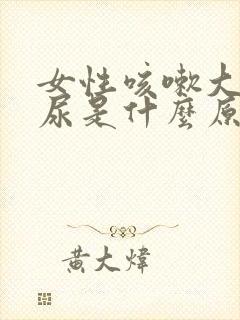 女性咳嗽大
尿是什麼原
黃大煒